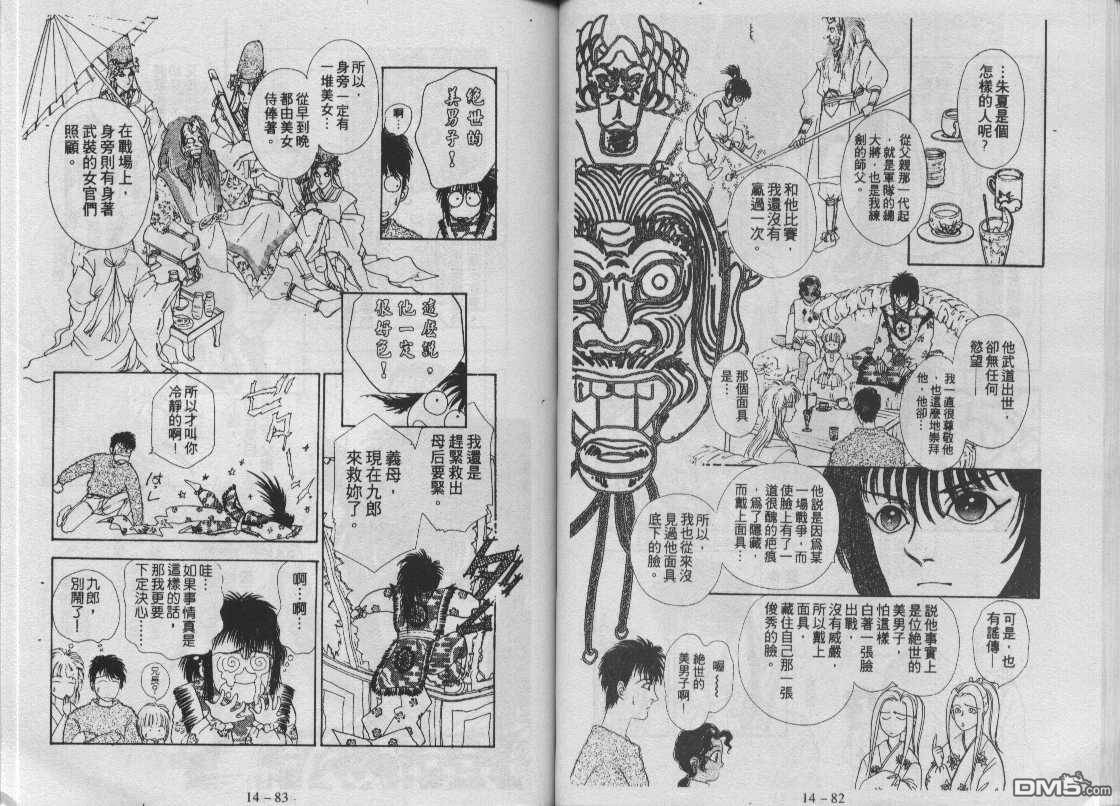 …朱夏是個
怎樣的人呢?
從父親那一代起
就是軍隊的總
大將，也是我練
劍的師父。
和他比賽，
我還沒有
贏過一次。
他武道出世，
卻無任何
慾望——
我一直很尊敬他
，也這麼地崇拜
他，他卻…
那個面具
是…
他說是因為某
一場戰爭，而
使臉上有了一
道很醜的疤痕
，為了隱藏
而戴上面具…
所以，
我也從來沒
見過他面具
底下的臉。
可是，也
有謠傳——
說他事實上
是位絕世的
美男子，
怕這樣
白著一張臉
出戰，
沒有威嚴，
所以戴上
面具，
藏住自己那一張
俊秀的臉。
喔~~~
絕世的
美男子啊！
14-82
絕世的
美男子！
啊…
所以，
身旁一定有
一堆美女…
從早到晚
都由美女
侍俸著。
在戰場上，
身旁則有身著
武裝的女官們
照顧。
這麼說，
他一定
很好色！
我還是
趕緊救出
母后要緊。
義母，
現在九郎
來救妳了。
所以才叫你
冷靜的啊！
啊…啊…
哇…
如果事情真是
這樣的話，
那我更要
下定決心……
九郎，
別鬧了—
兄長?
14-83
DM5.com